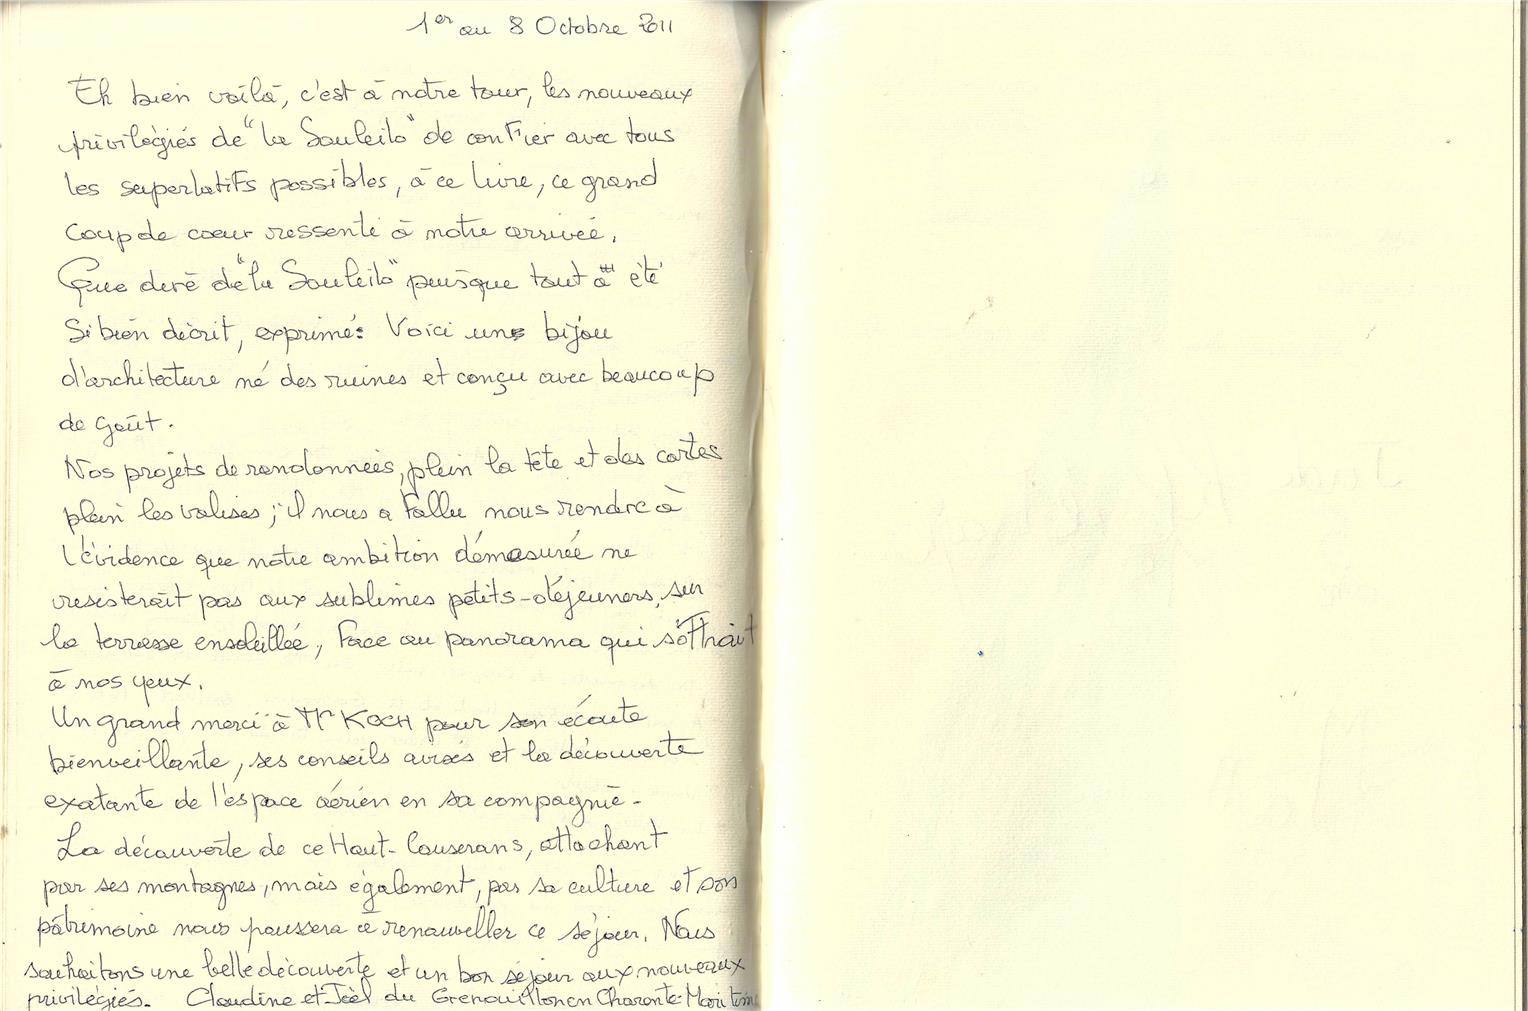 1er au 8 Octobre 2011
Eh bien voilà, c'est à notre tour, les nouveaux
privilégiés de "la Souleilo" de confier avec tous
les superlatifs possibles, à ce livre, ce grand
coup de coeur ressenti à notre arrivée.
Que dire de "la Souleilo" puisque tout a été
si bien décrit, exprimé: Voici un bijou
d'architecture né des ruines et conçu avec beaucoup
de goût.
Nos projets de randonnées, plein la tête et des cartes
plein les valises; il nous a fallu nous rendre à
l'évidence que notre ambition démesurée ne
resisterait pas aux sublimes petits-déjeuners, sur
la terrasse ensoleillée, face au panorama qui s'offrait
à nos yeux.
Un grand merci à Mr KOCH pour son écoute
bienveillante, ses conseils avisés et la découverte
exatante de l'espace aérien en sa compagnie.
La découverte de ce Haut-Couserans, attachant
par ses montagnes, mais également, par sa culture et son
patrimoine nous poussera à renouveller ce séjour. Nous
souhaitons une belle découverte et un bon séjour aux nouveaux
privilégiés. Claudine et Joël du Grenouillon en Charente-Maritime